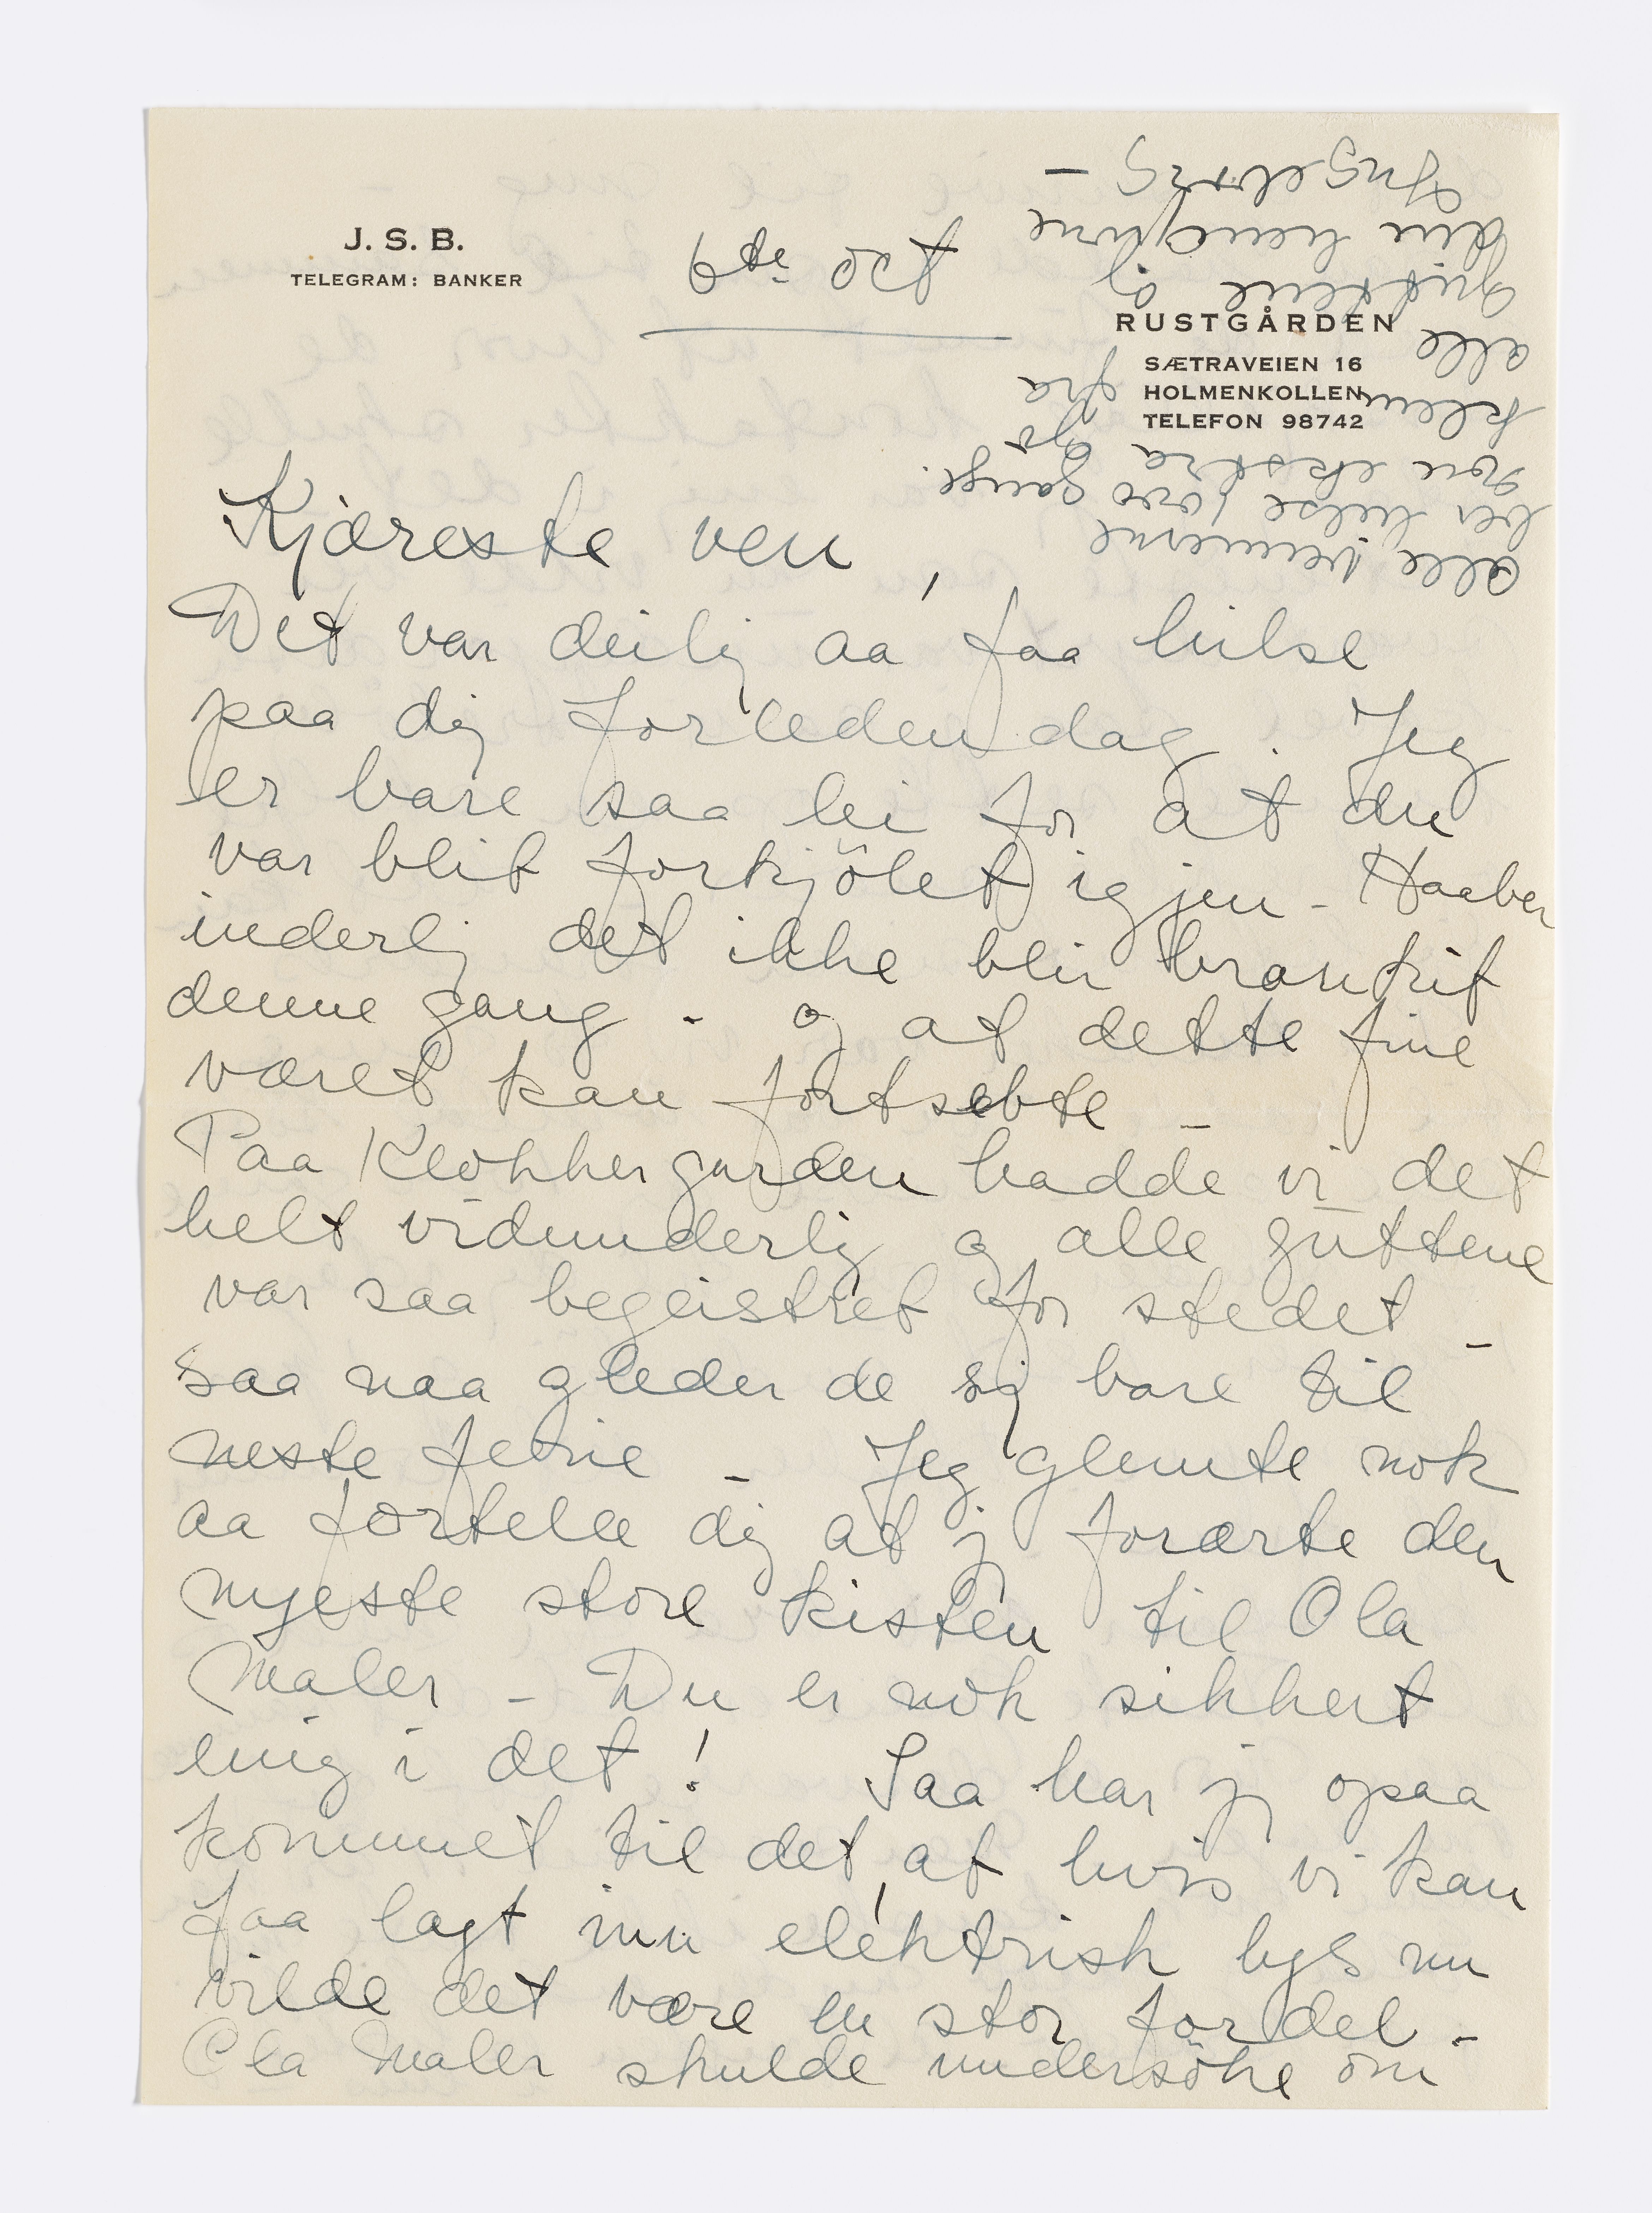 J. S. B.
TELEGRAM: BANKER
6te Oct
RUSTGÅRDEN
SÆTRAVEIEN 16
HOLMENKOLLEN
TELEFON 98742
Kjæreste ven,
Det var deilig aa faa hilse
paa dig forleden dag. Jeg
er bare saa lei for at du
var blit forkjölet igjen - Haaber
inderlig det ikke blir bronkit
denne gang - og at dette fine
været kan fortsette -
Paa Klokkergarden hadde vi det
helt vidunderlig og alle guttene
var saa begeistret for stedet -
saa naa gleder de sig bare til
neste ferie - Jeg glemte nok
aa fortelle dig at jeg forærte den
nyeste store kisten til Ola
Maler - Du er nok sikkert
enig i det! Saa har jeg opsaa
kommet til det, at hvis vi kan
faa lagt inn elektrisk lys nu
vilde det være en stor fordel -
Ola Maler skulde undersöke om
alle vennerne
ber hilse 1000 gange.
Og
non ekstra
klem fra
alle
guttene og
din hengivne
Ingeborg -